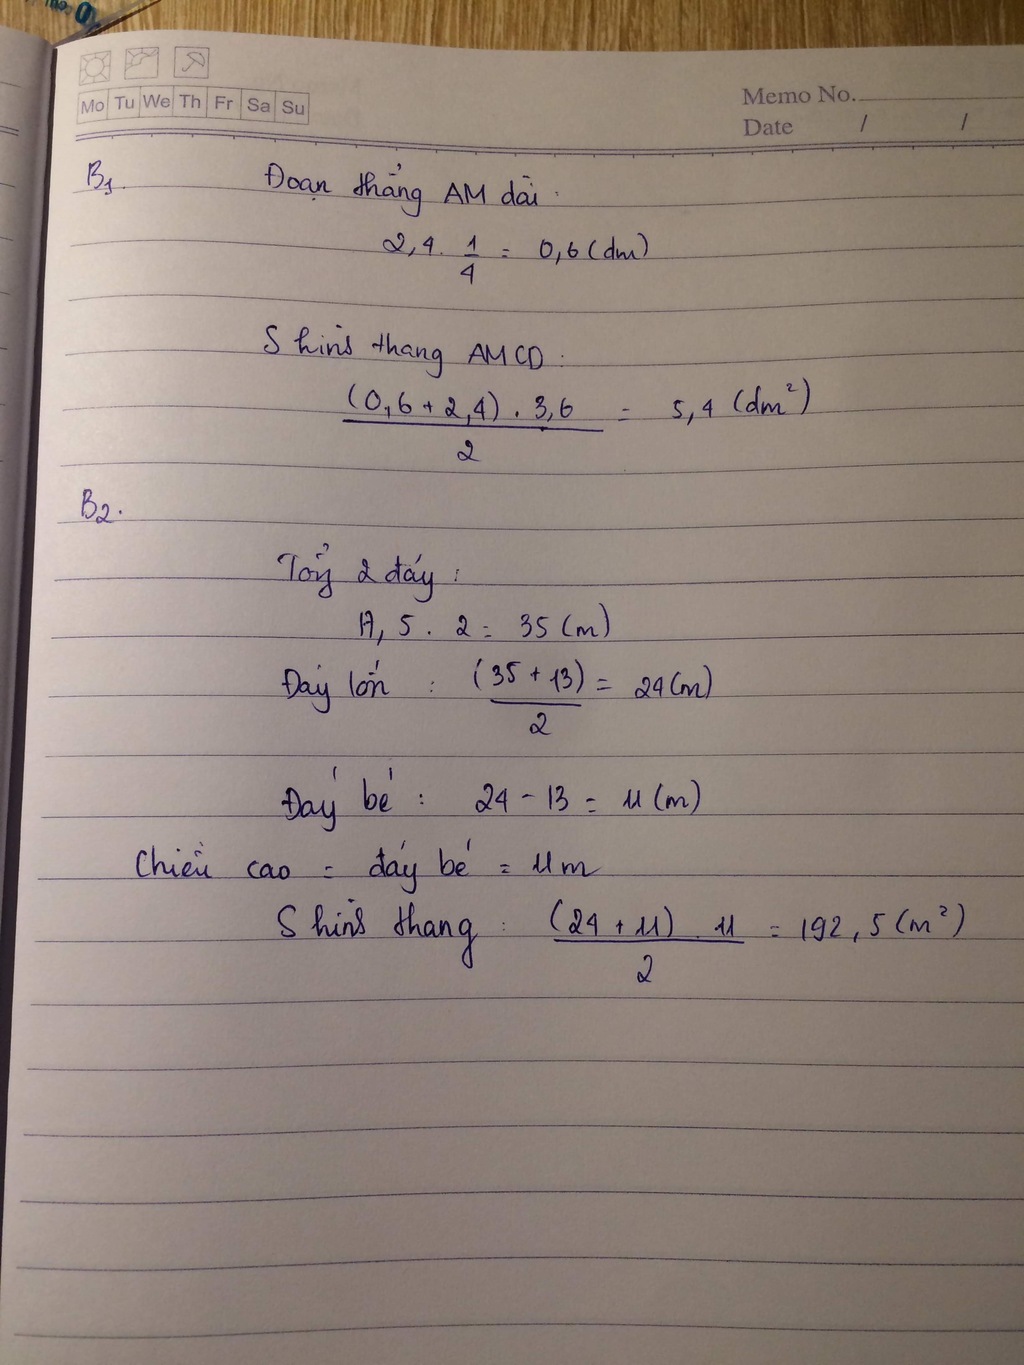 Mo Tu We Th Fr Sa Su
Memo No.
Date / /
B1. Đoạn thẳng AM dài:
2,4 . 1/4 = 0,6 (dm)
S hình thang AMCD:
(0,6 + 2,4) . 3,6 / 2 = 5,4 (dm²)
B2.
Tổng 2 đáy:
17,5 . 2 = 35 (m)
Đáy lớn : (35 + 13) / 2 = 24 (m)
Đáy bé : 24 - 13 = 11 (m)
Chiều cao = đáy bé = 11 m
S hình thang : (24 + 11) . 11 / 2 = 192,5 (m²)